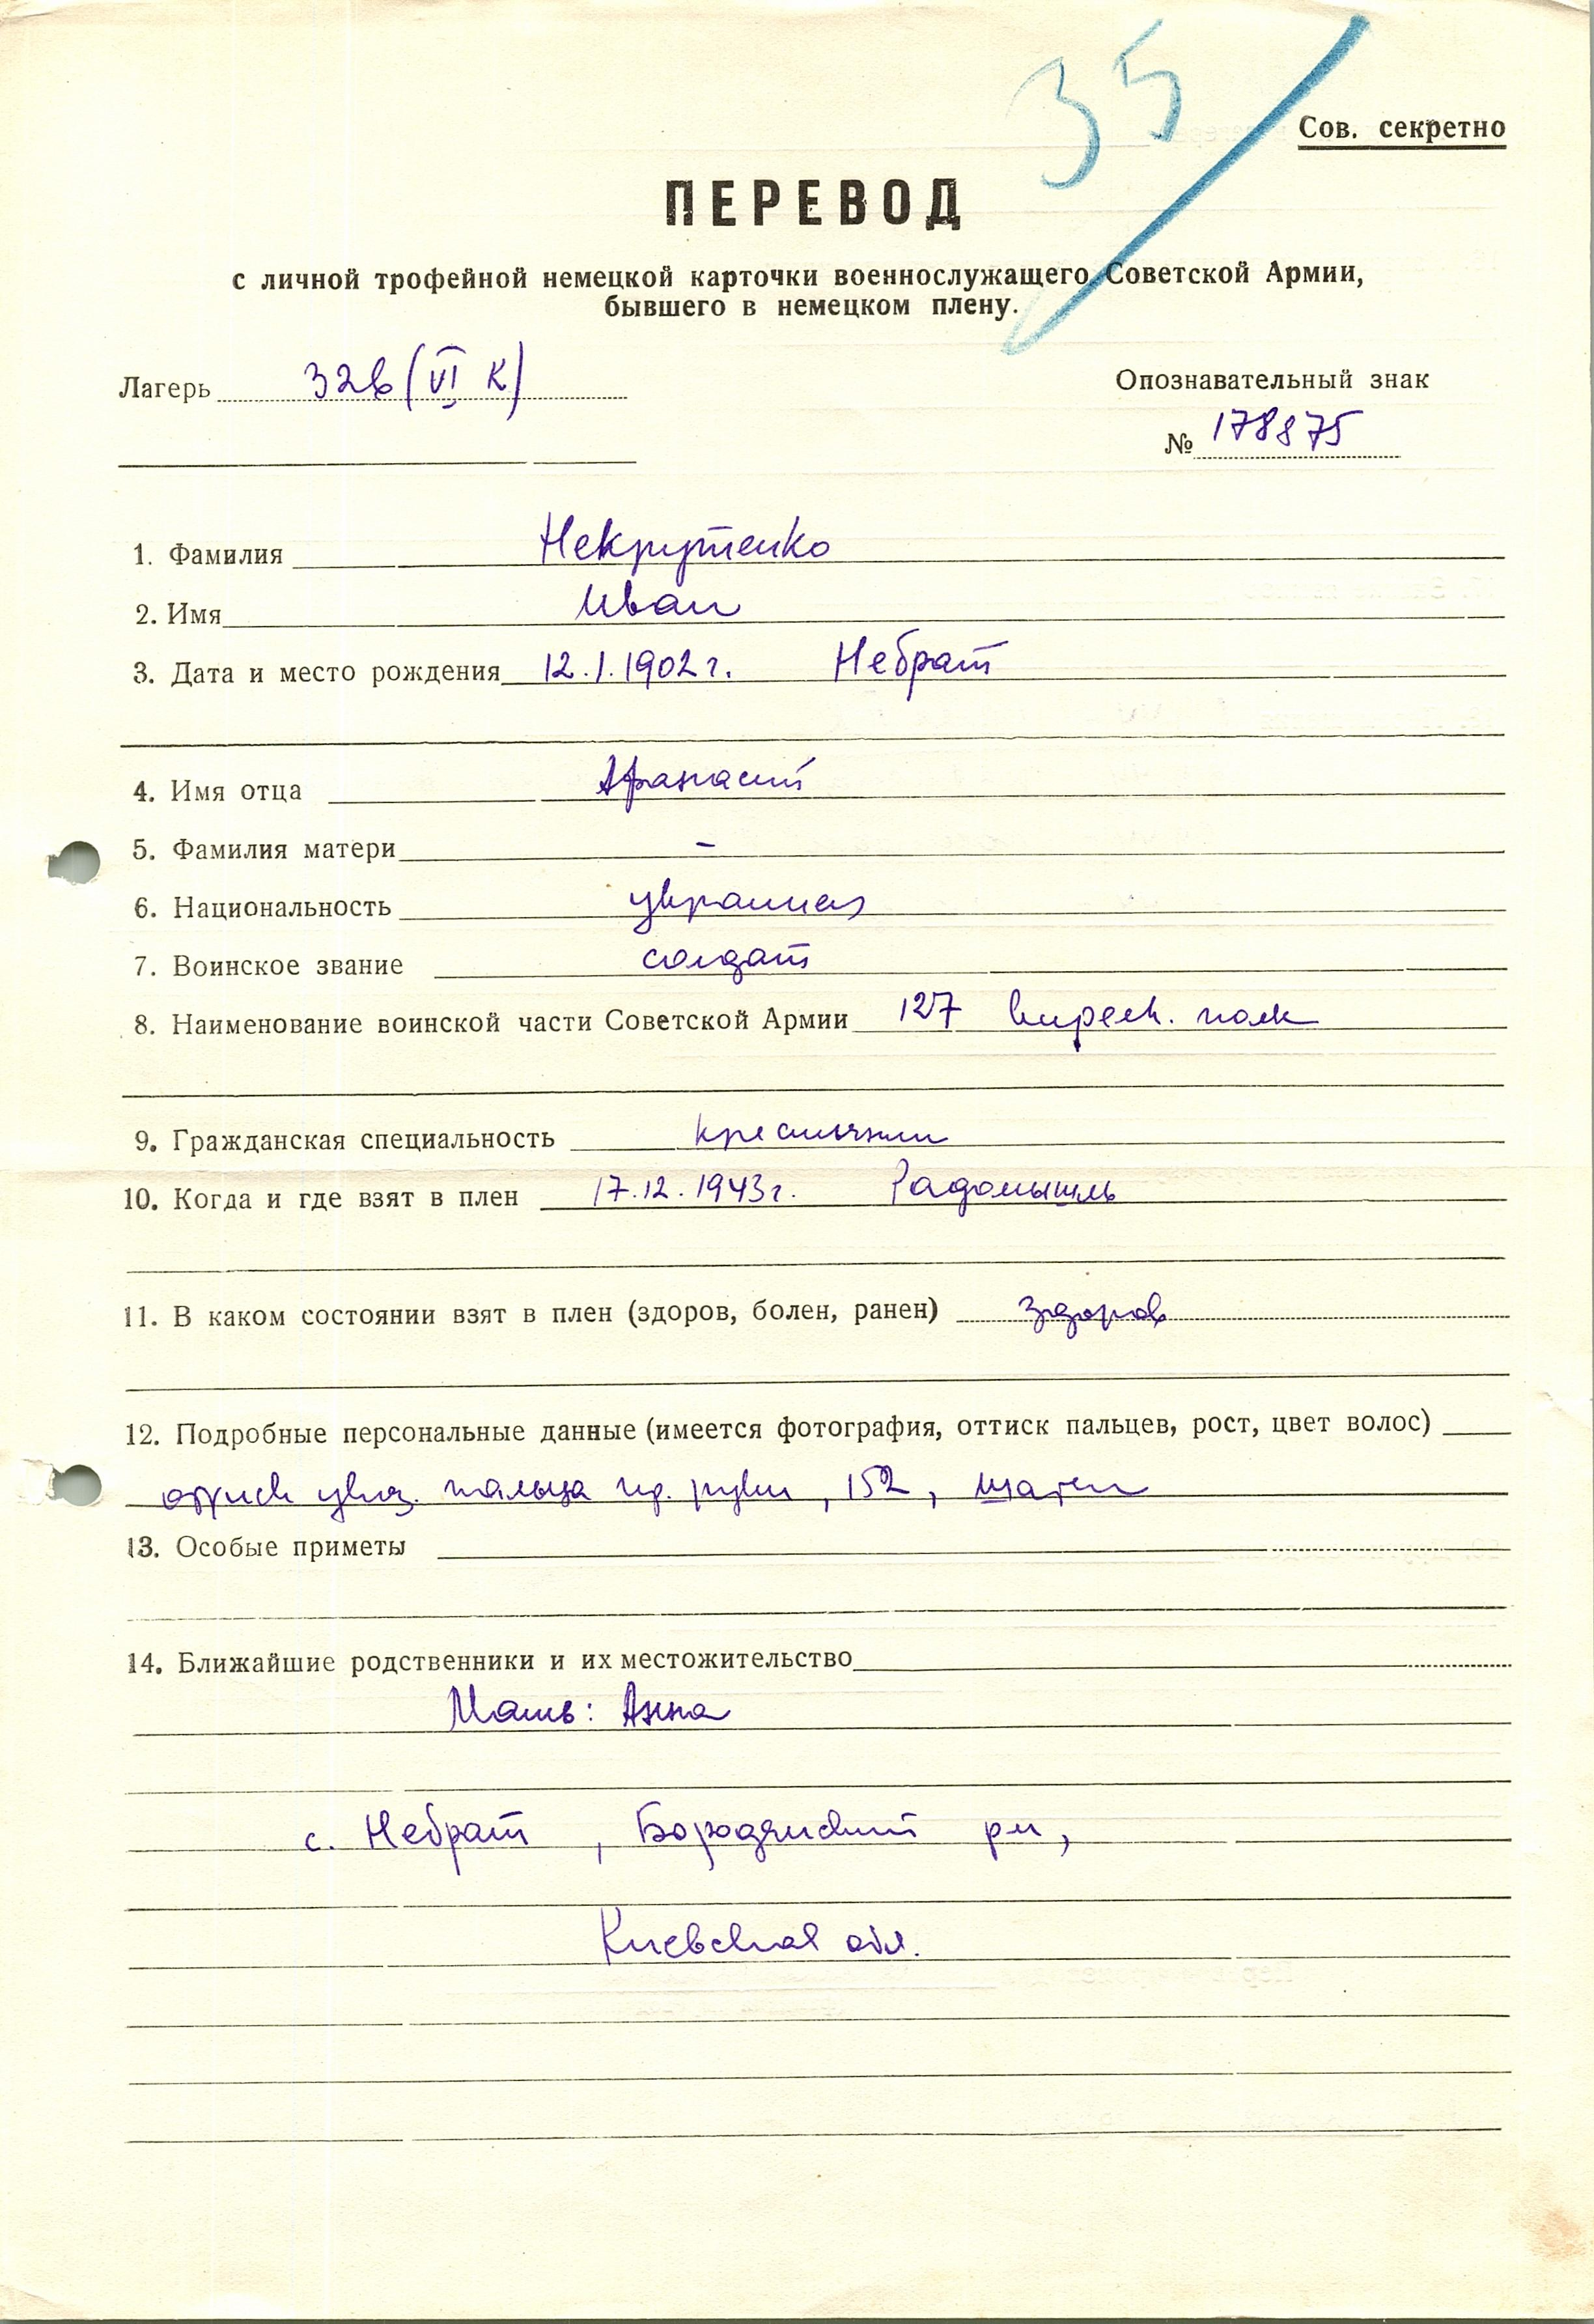 35
Сов. секретно
ПЕРЕВОД
с личной трофейной немецкой карточки военнослужащего Советской Армии,
бывшего в немецком плену.
Лагерь 326 (VI К)
Опознавательный знак
№ 178875
1. Фамилия Некрутенко
2. Имя Иван
3. Дата и место рождения 12.1.1902 г. Небрат
4. Имя отца Афанасий
5. Фамилия матери –
6. Национальность украинец
7. Воинское звание солдат
8. Наименование воинской части Советской Армии 127 полк
9. Гражданская специальность крестьянин
10. Когда и где взят в плен 17.12.1943 г. Радомышль
11. В каком состоянии взят в плен (здоров, болен, ранен) здоров
12. Подробные персональные данные (имеется фотография, оттиск пальцев, рост, цвет волос)
указ. пальца пр. руки, 152, шатен
13. Особые приметы
14. Ближайшие родственники и их местожительство
Мать: Анна
с. Небрат, Бородянский рн,
Киевская обл.